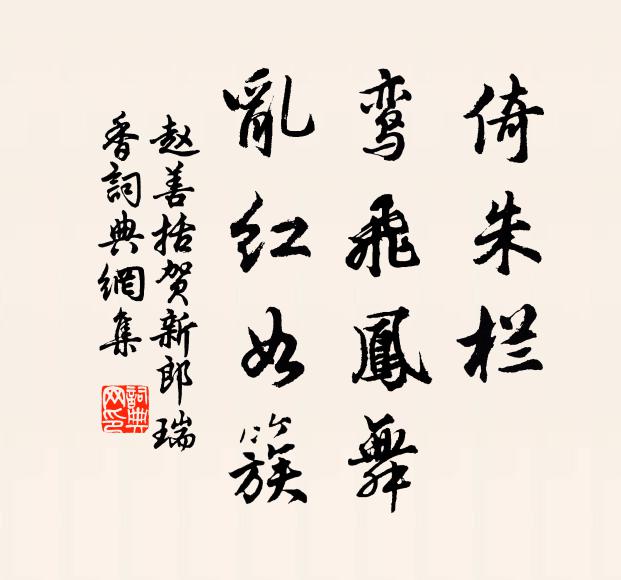 倚朱栏
鸾飛鳳舞
亂红如簇
赵善括贺新郎瑞
香詞典網集
詞典
网印